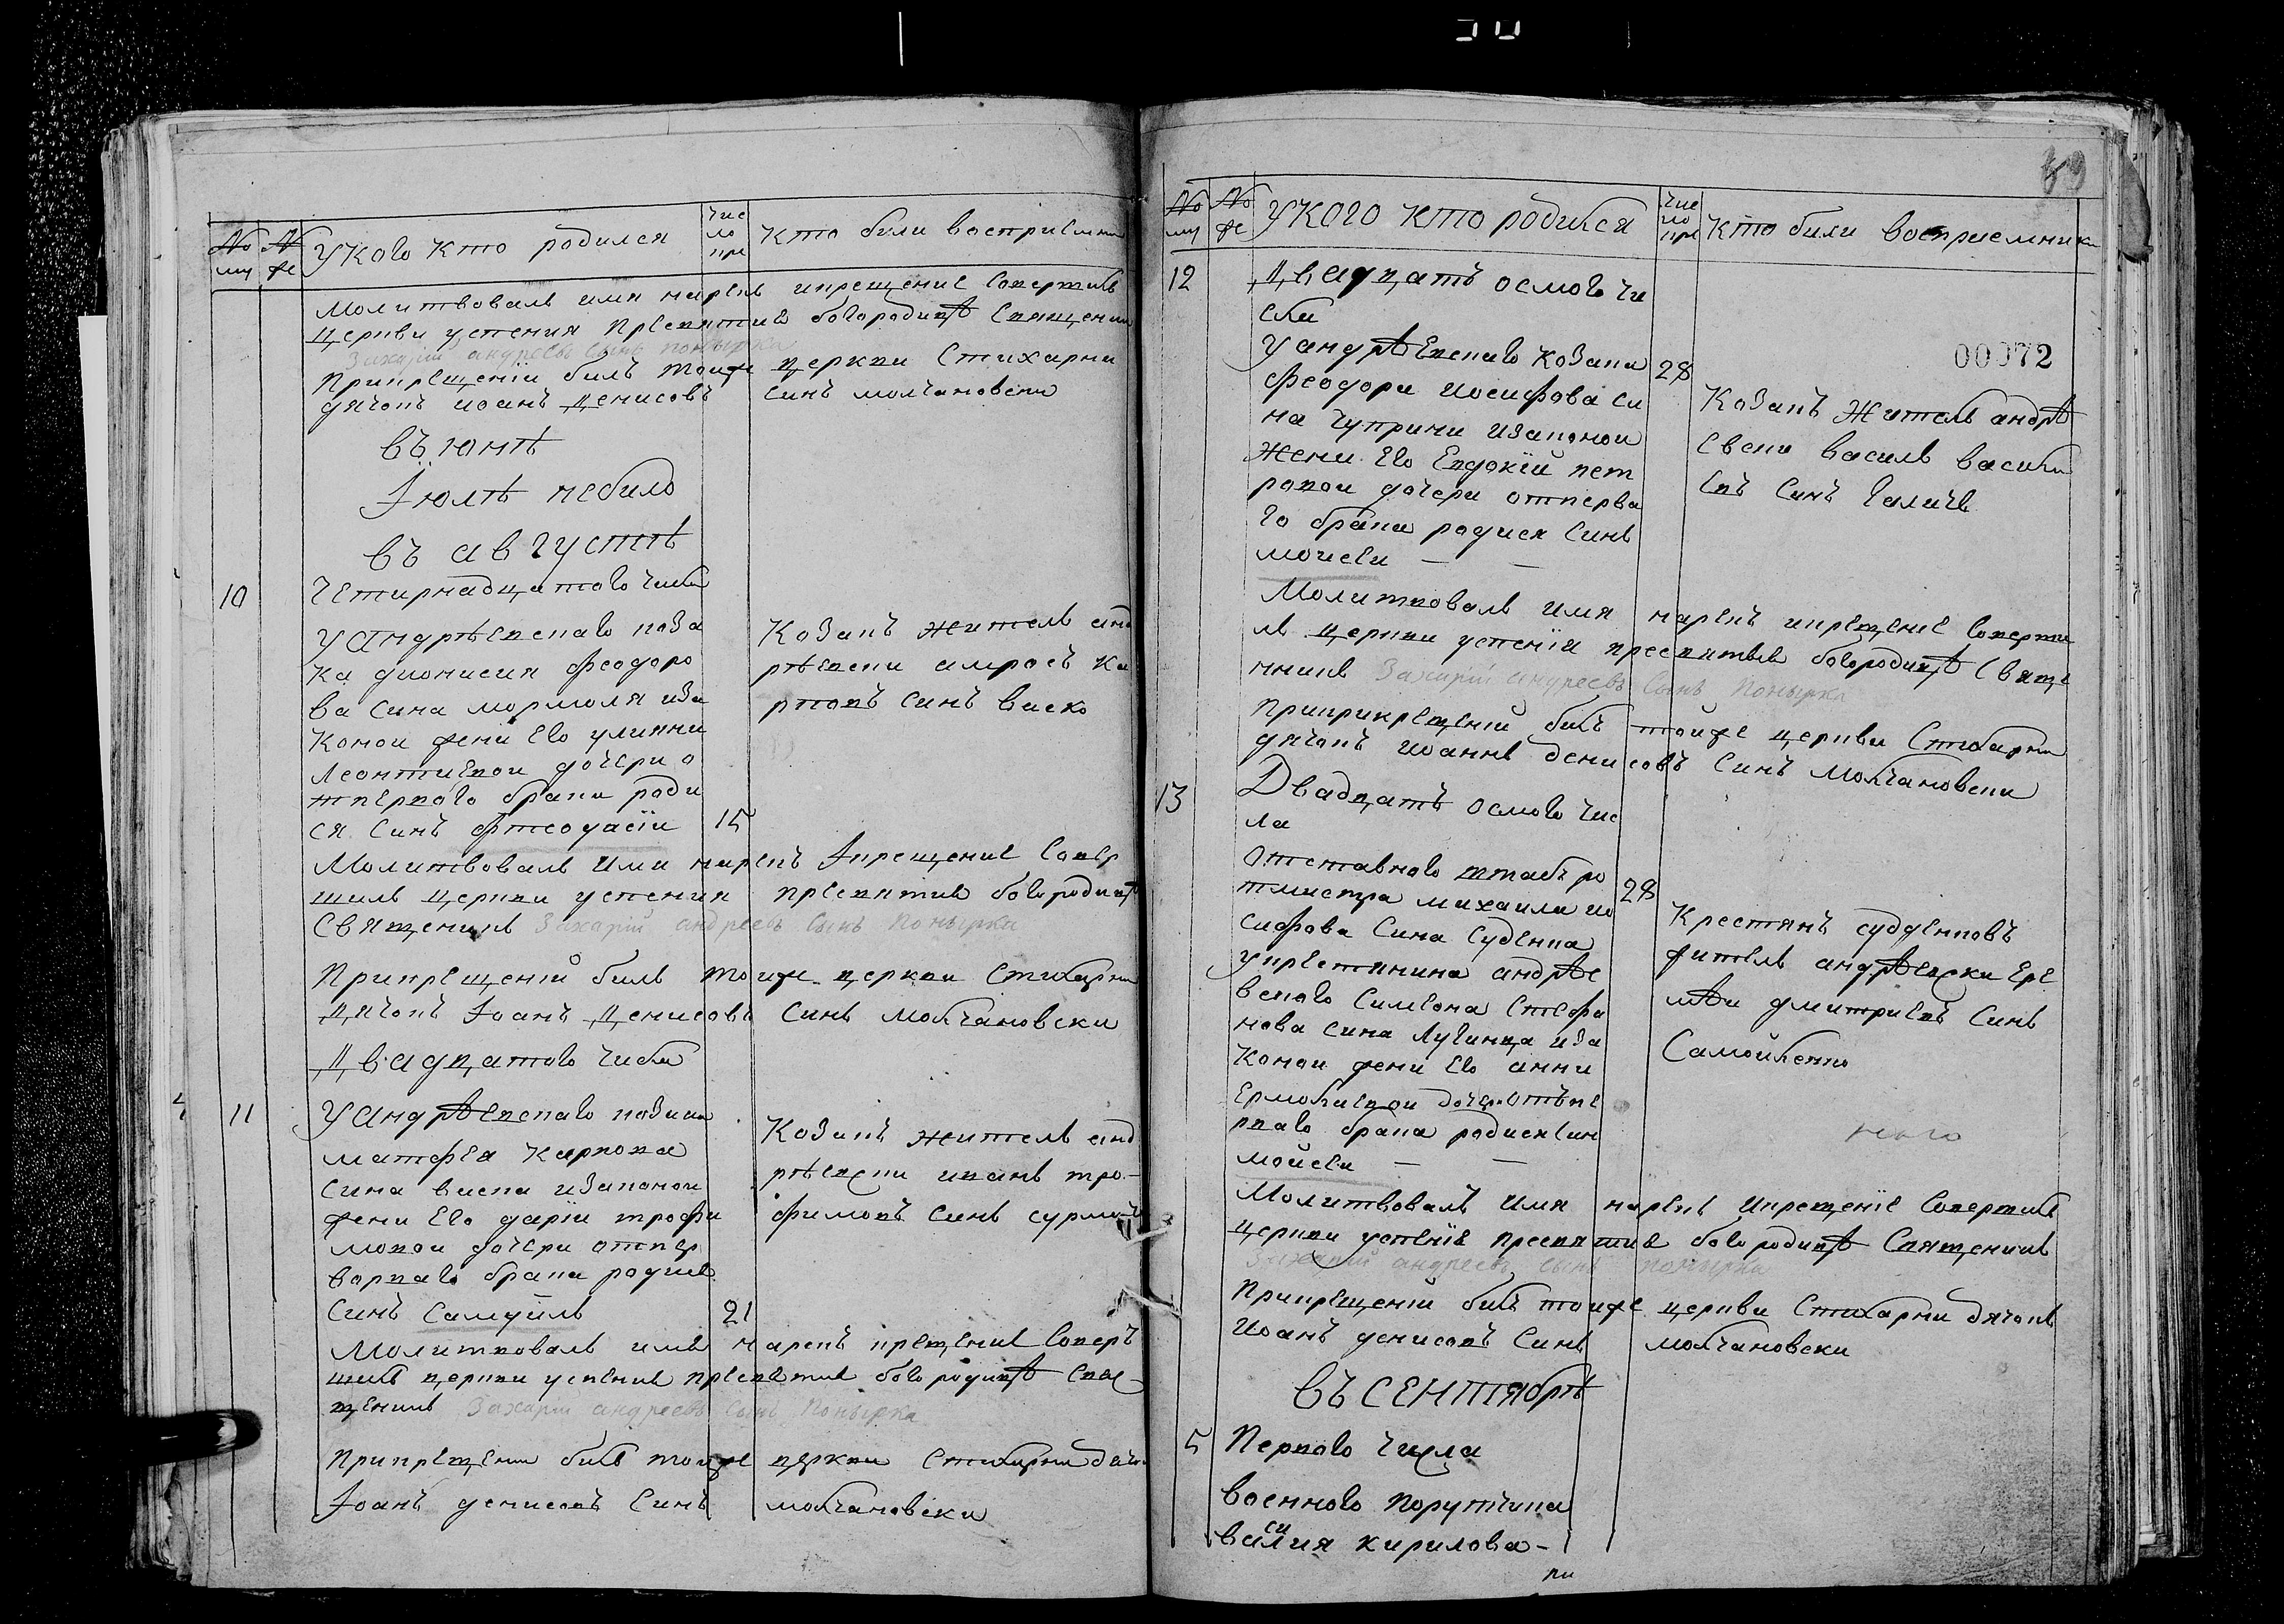 № му № же У Кого Кто родился Чис ло кре Кто били восприемни
Молитвовалъ имя нарекъ икрещение Совершилъ
Церкви успения Пресвятия богородицѣ Священик
Захарій андреевъ сынъ понырка
Прикрещении билъ тоиже церкви Стихарни
дячокъ иоанъ Денисовъ Синъ молчановски
въ юнѣ
Іюлѣ небило
въ августѣ
10 Четирнадцатого числа
У андрѣевскаго коза
ка дионисия феодоро
ва Сина мормоля иза
коной жени Его улияни
леонтиевои дочери о
тпервого брака роди
ся Синъ фтеодасіи 15
Козакъ житель анд
рѣевски амросъ ка
рповъ синъ васко
Молитвовалъ Имя нарекъ Ікрещение Совер
шилъ Церкви успения пресвятия богородицѣ
Священикъ Захарій андреевъ Сынъ Понырка
Прикрещеній билъ тоиже церкви Стихарни
Дячокъ Іоанъ Денисовъ Синъ Молчановски
Двадцатого числа
11 У андрѣевскаго козака
матфея Карпова
Сина васка изаконои
жени Его даріи трофи
мовои дочери отпер
ворваго брака родися
Синъ Самуилъ 21
Козакъ житель анд
рѣевски иванъ тро-
фимовъ Синъ сурмач
Молитвовалъ имя нарекъ крещение Соверъ
шилъ церкви успения пресвятия богородицѣ Свя-
щеникъ Захарій андреевъ Сынъ Понырка
Прикрещении билъ тоиже церкви Стихарни дячо
Іоанъ денисовъ Синъ молчановски
59
№ му № же У КОГО кто родился Чис ло кре Кто били восприемники
00072
12 Двадцатъ осмого чи
сла
У андрѣевскаго козака 28
феодора иосифова си
на чуприни изаконои
жени Его Евдокій пет
ровои дочери отперва
го брака родися Синъ
моисей — —
Козакъ Житель андрѣ
евски василь васили
евъ синъ галичъ
Молитвовалъ имя нарекъ икрещение Соверши
лъ церкви успенія пресвятия богородицѣ Свяще
нникъ Захарій андреевъ Сынъ Понырка
Приприкрещеній билъ тойже церкви Стихарни
дячокъ иоаннъ денисовъ Синъ Молчановски
13 Двадцатъ осмого чис
ла
Отставного штабъ ро 28
тмистра михаила ио
сифова Сина Судіенка
укрестянина андрѣе
вского Симеона Стефа
нова сина Лучинца иза
Конои жени Его анни
Ермолаевои дочери отъпе
рваго брака родися син
мойсей — —
Крестянъ судденковъ
житель андрѣевски Ере
мѣи дмитриевъ Синъ
Самойленко
Молитвовалъ Имя нарекъ Икрещеніе Совершилъ
церкви успенія пресвятия богородицѣ Священикъ
Захарій андреевъ сынъ понырка
Прикрещеній билъ тоиже церкви Стихарни дячокъ
Иоанъ денисовъ Синъ молчановски
въ СЕНтябрѣ
5 Первого числа
военного порутчика
василия кирилова-